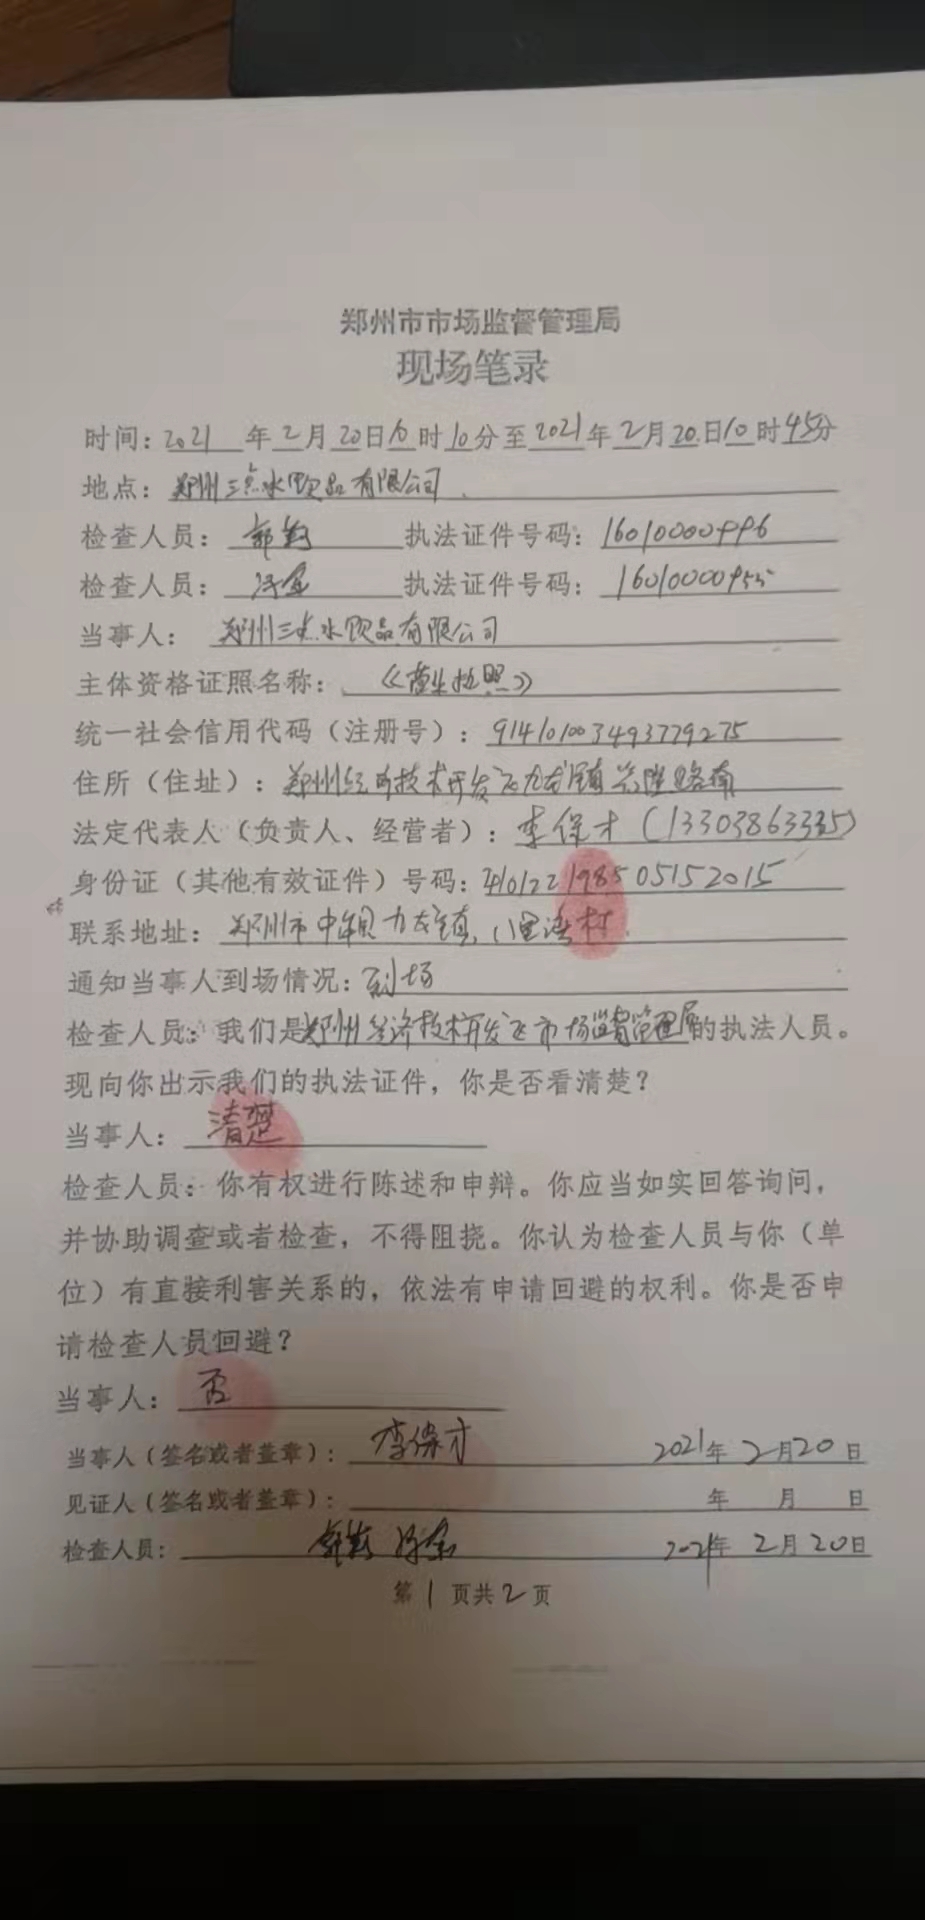 郑州市市场监督管理局
现场笔录
时间：2021年2月20日10时10分至2021年2月20日10时45分
地点：郑州三点水饮品有限公司
检查人员：郭 执法证件号码：16010000996
检查人员： 执法证件号码：16010000955
当事人：郑州三点水饮品有限公司
主体资格证照名称：《营业执照》
统一社会信用代码（注册号）：914101003493779275
住所（住址）：郑州经济技术开发区九龙镇兴隆路南
法定代表人（负责人、经营者）：李保才（13303863335）
身份证（其他有效证件）号码：410122198505152015
联系地址：郑州市中牟县九龙镇八里湾村
通知当事人到场情况：到场
检查人员：我们是郑州经济技术开发区市场监督管理局的执法人员。
现向你出示我们的执法证件，你是否看清楚？
当事人：清楚
检查人员：你有权进行陈述和申辩。你应当如实回答询问，
并协助调查或者检查，不得阻挠。你认为检查人员与你（单
位）有直接利害关系的，依法有申请回避的权利。你是否申
请检查人员回避？
当事人：否
当事人（签名或者盖章）：李保才 2021年2月20日
见证人（签名或者盖章）： 年 月 日
检查人员： 2021年2月20日
第1页共2页